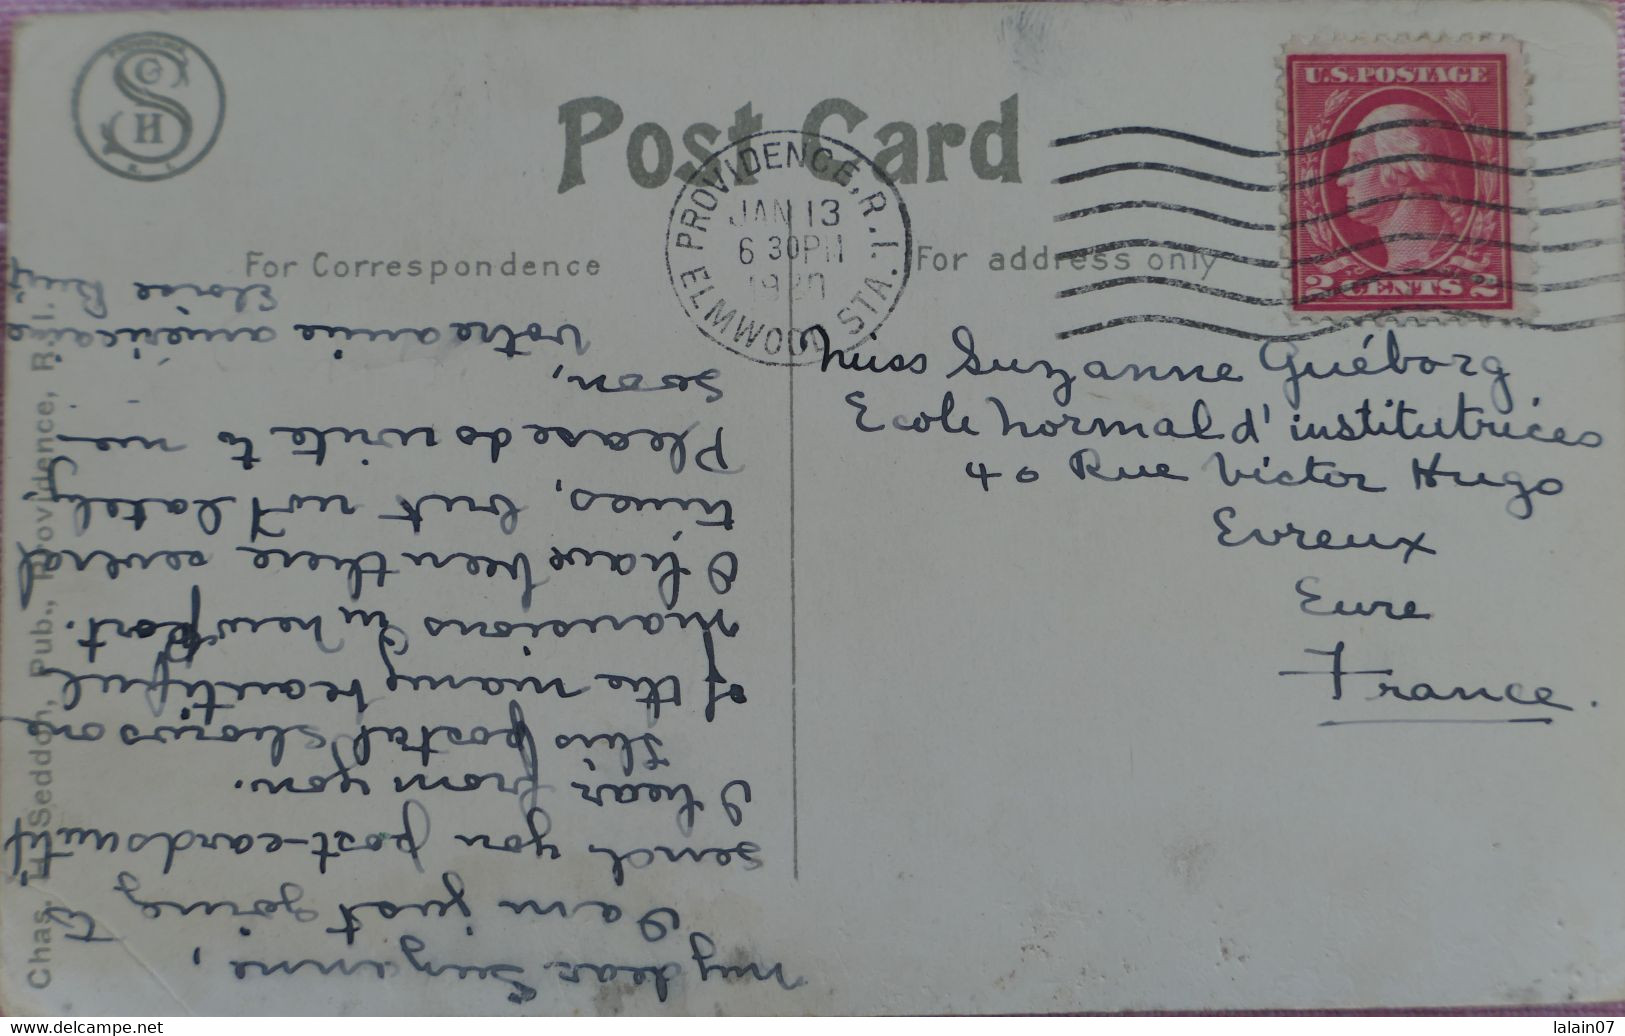 Post Card
For Correspondence
For address only
PROVIDENCE, R.I.
JAN 13
6 30PM
1920
ELMWOOD STA.
U.S. POSTAGE
2 CENTS 2
Miss Suzanne Guéborg
Ecole Normal d'institutrices
40 Rue Victor Hugo
Evreux
Eure
France.
My dear Suzanne,
I am just going to
send you post-cards until
I hear from you.
This postal shows one
of the many beautiful
mansions in New Port.
I have been there several
times, but not lately.
Please do write to me
soon,
Votre amie américaine
Chas. H. Seddon, Pub., Providence, R. I.
PROVIDENCE
C S H
R. I.
lalain07